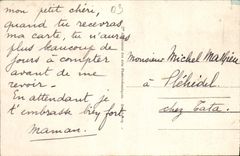 mon petit chéri,
quand tu recevras,
ma carte, tu n'auras
plus beaucoup de
jours à compter
avant de me
revoir.
En attendant, je
t'embrasse bien fort,
Maman.
Monsieur Michel
à Pléhédel
chez Tata.